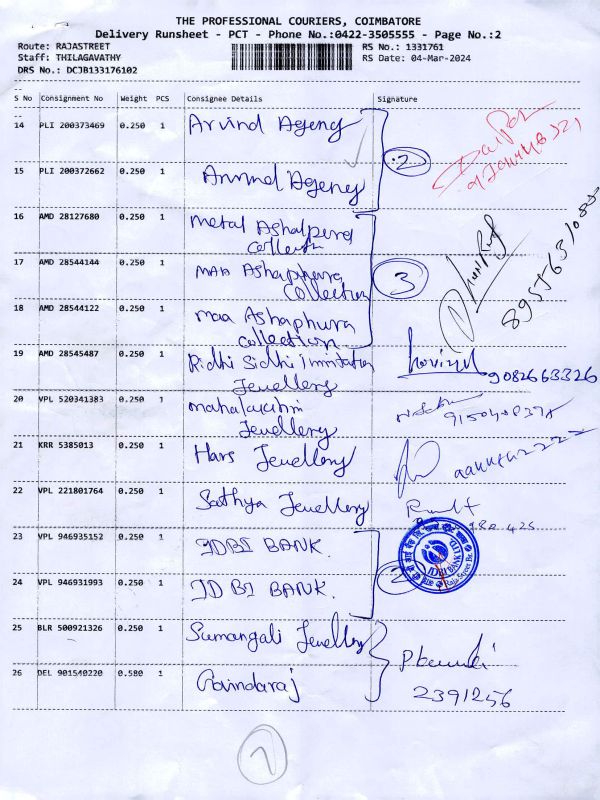 THE PROFESSIONAL COURIERS, COIMBATORE
Delivery Runsheet - PCT - Phone No.:0422-3505555 - Page No.:2
Route: RAJASTREET RS No.: 1331761
Staff: THILAGAVATHY RS Date: 04-Mar-2024
DRS No.: DCJB133176102
S No Consignment No Weight PCS Consignee Details Signature
14 PLI 200373469 0.250 1 Arvind Agency
15 PLI 200372662 0.250 1 Agency
2
16 AMD 28127680 0.250 1 Collectn
17 AMD 28544144 0.250 1 maa Ashappura
Collection
3
18 AMD 28544122 0.250 1 maa Ashaphura
collection
19 AMD 28545487 0.250 1 Ridhi Sidhi Imitation
Jewellery
9082663326
20 VPL 520341383 0.250 1 mahalakshmi
Jewellery
21 KRR 5385013 0.250 1 Hars Jewellery
22 VPL 221801764 0.250 1 Sathya Jewellery
23 VPL 946935152 0.250 1 IDBI BANK.
24 VPL 946931993 0.250 1 IDBI BANK.
2
25 BLR 500921326 0.250 1 Sumangali Jewellery
26 DEL 901540220 0.580 1 Govindaraj
2391256